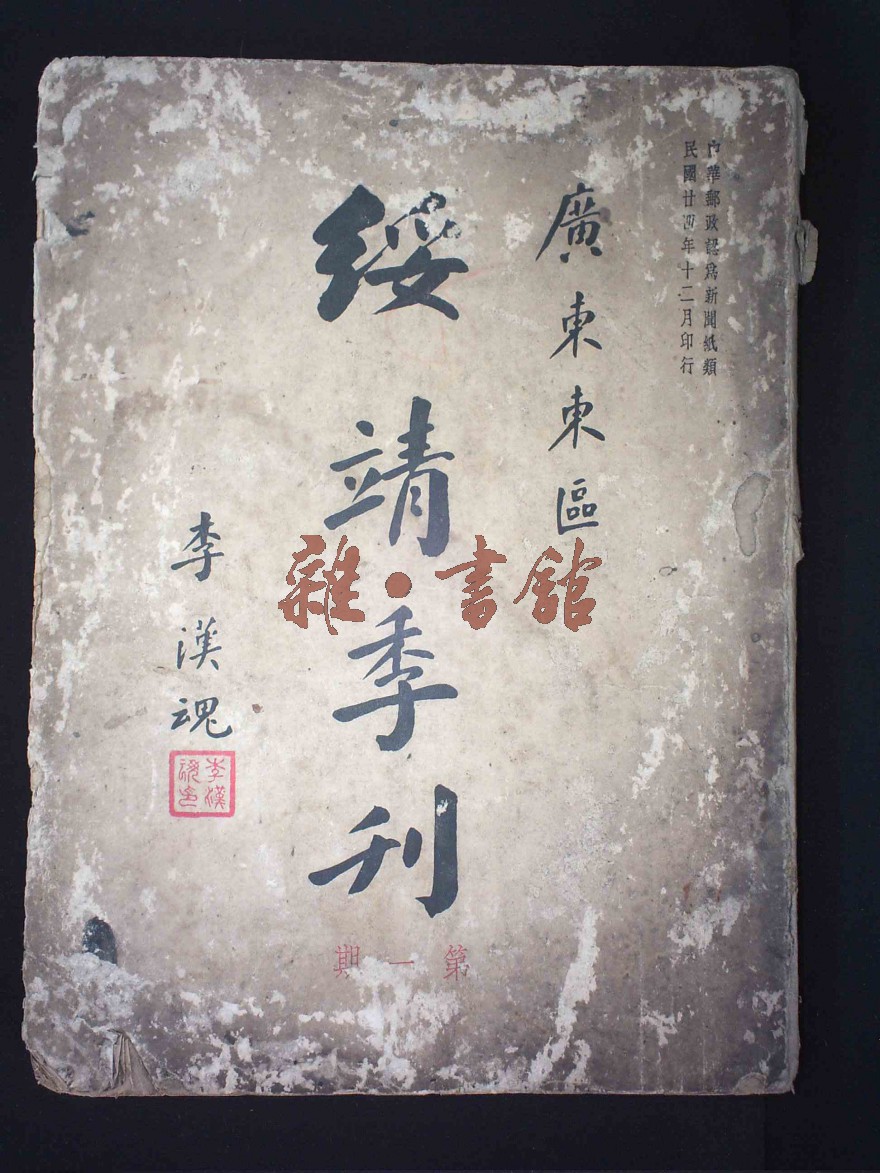 中華郵政認爲新聞紙類
民國廿四年十二月印行
廣東東區
綏靖季刊
李漢魂
李漢魂印
第一期
雜·書館